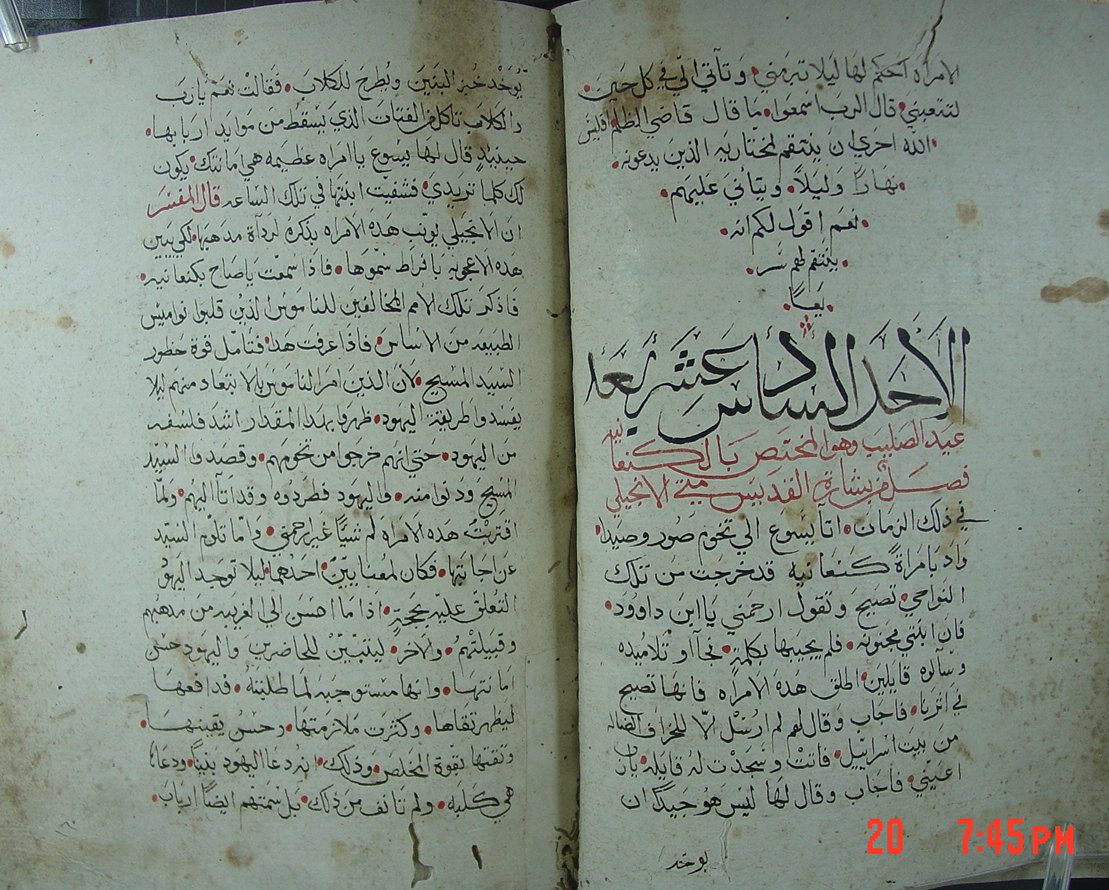 الامراه احكم لها ليلا تبرمني • وتآتي اليّ في كل حين •
لتتعبني • قال الرب اسمعوا • ما قال قاضي الظلم افليس
• الله احري ان ينتقم لمختاريه الذين يدعونه •
• نهارًا وليلاً • ويتأني عليهم •
• نعم اقول لكم انه •
• ينتقم لهم سر •
• يعًا •
الاحد السادس عشر بعد
عيد الصليب وهو المختص بالكنعانيه
فصل من بشارة القديس متي الانجيلي
في ذلك الزمان • اتا يسوع الي تخوم صور وصيدا •
واد بامراة كنعانيه قد خرجت من تلك
النواحي • تصيح وتقول ارحمني يا ابن داوود •
فان ابنتي مجنونه • فلم يجيبها بكلمة • نجآاو تلاميده
وسآلوه قايلين • اطلق هده الامراه فانها تصيح
في اثرنا • فاجاب وقال لهم لم ارسل الّا للخراف الضاله
من بيت اسراييل • فاتت وسجدت له قايله • يارب
اعيني • فاجاب وقال لها ليس هو جيدًا ان
يوخد
يوخد خبز البنين ويطرح للكلاب • فقالت نعم يارب
والكلاب تاكل من الفتات الذي يسقط من موايد اربابها •
حينيدٍ قال لها يسوع يا امراه عظيمه هي امانتك • يكون
لك كلما تريدي • فشفيت ابنتها في تلك الساعه قال المفسر
ان الانجيلي يونف هده الامراه بذكره لردآة مدهبها • لكي يبين
هده الاعجوبه بافراط سموها • فاذا سمعت ياصاح بكنعانيه •
فاذكر تلك الامم المخالفين للناموس الذين قلبوا نواميس
الطبيعه من الاساس • فاذا عرفت هدا • فتامل قوة حظور
السيد المسيح • لان الذين امر الناموس بالابتعاد منهم ليلا
يفسدوا طريقة اليهود • ظهروا بهدا المقدار اشد فلسفه
من اليهود • حتي انهم خرجوا من تخومهم • وقصدوا السيد
المسيح ودنوا منه • واليهود فطردوه وقد اتآ اليهم • ولما
اقتربت هده الامراه لم شيًا غير ارحمني • وانما تاوم السيد
عن اجابتها • فكان لمعنايين • احدهما ليلا توجد اليهود
التعلق عليه بحجة • اذا ما احسن الي الغريبه من مدهبهم
وقبيلتهم • والاخر • ليتبين للحاضرين واليهود حسن
امانتها • وانها مستوجبه لما طلبته • فدافعها
ليظهر نقاها • وكثرت ملازمتها • وحسن يقينها •
وثقتها بقوة المخلص • وذلك • انه دعا اليهود بنينًا • ودعاها
هي كلبه • ولم تانف من ذلك • بل سمتهم ايضًا ارباب •
20 7:45 PM